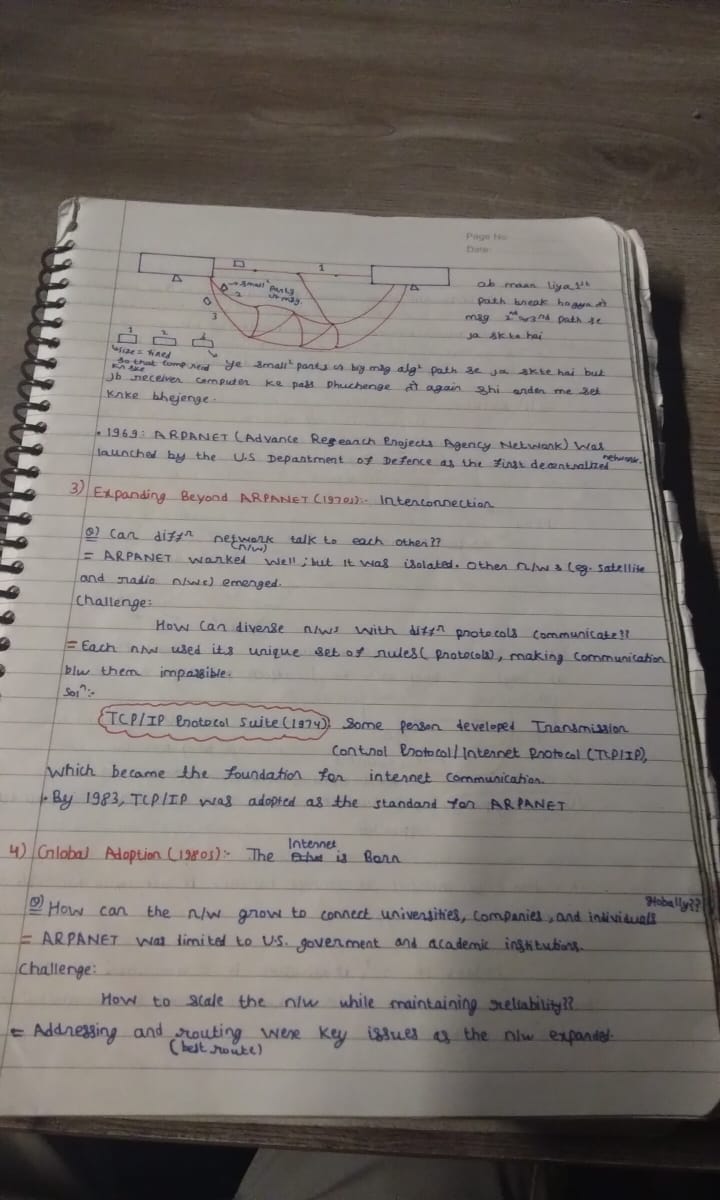 Page No:
Date:
1
→ small² parts
of msg.
2
3
ab maan liya 1st
path break hogya तो
msg 2nd or 3rd path se
ja skta hai
1 2
↳ size = fixed
so that comp read
kr ske
ye small² parts of big msg alg² path se ja skte hai but
jb receiver computer ke pass phuchenge तो again shi order me set
krke bhejenge.
• 1969: ARPANET (Advance Research Projects Agency Network) was
launched by the U.S Department of Defence as the first decentralized network.
3) Expanding Beyond ARPANET (1970s):- Interconnection
Q) Can diffn network talk to each other??
(n/w)
= ARPANET worked well ; but it was isolated. Other n/w s (eg. satellite
and radio n/ws) emerged.
Challenge:
How can diverse n/ws with diffn protocols communicate??
= Each n/w used its unique set of rules ( protocols), making communication
b/w them impossible.
Soln:-
TCP/IP Protocol Suite (1974): Some person developed Transmission
Control Protocol/Internet Protocol (TCP/IP),
which became the foundation for internet communication.
• By 1983, TCP/IP was adopted as the standard for ARPANET
4) Global Adoption (1980s):- The Internet is Born
Q) How can the n/w grow to connect universities, companies, and individuals globally??
= ARPANET was limited to U.S. goverment and academic institutions.
Challenge:
How to scale the n/w while maintaining reliability??
= Addressing and routing were key issues as the n/w expanded.
(best route)